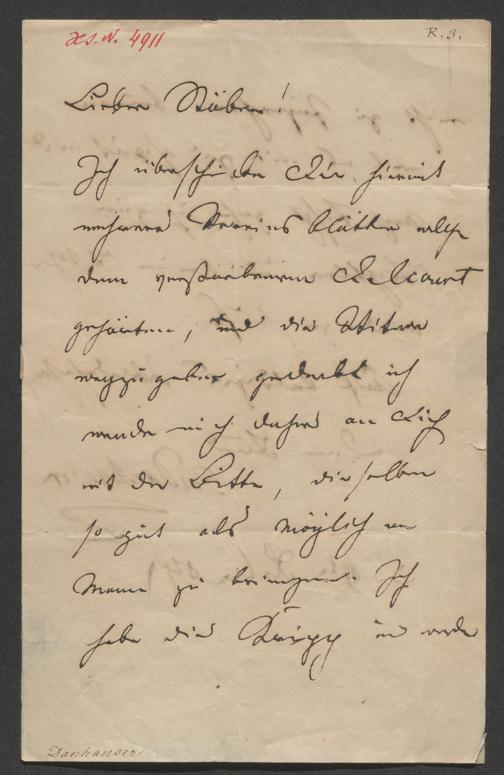 Hs. N. 4911
R. 3.
Lieber Stöber!
Ich überschicke Dir hiemit
mehrere Vereinsblätter welche
dem verstorbenen Delcourt
gehörten, und die Witwe
wegzugeben gedenkt ich
wende mich daher an Dich
mit der Bitte, dieselben
so gut als möglich an
Mann zu bringen. Ich
habe die
Danhauser